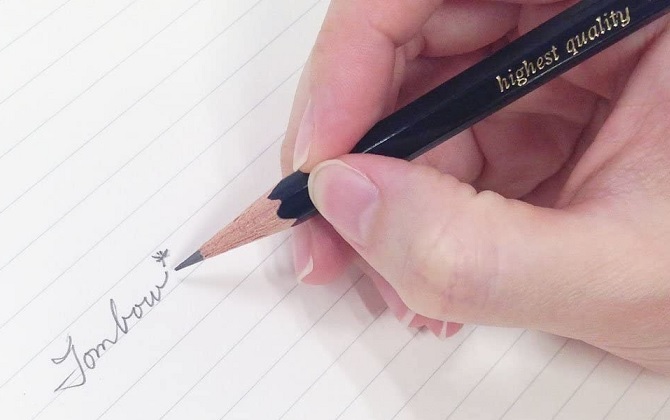 highest quality
Tombow*